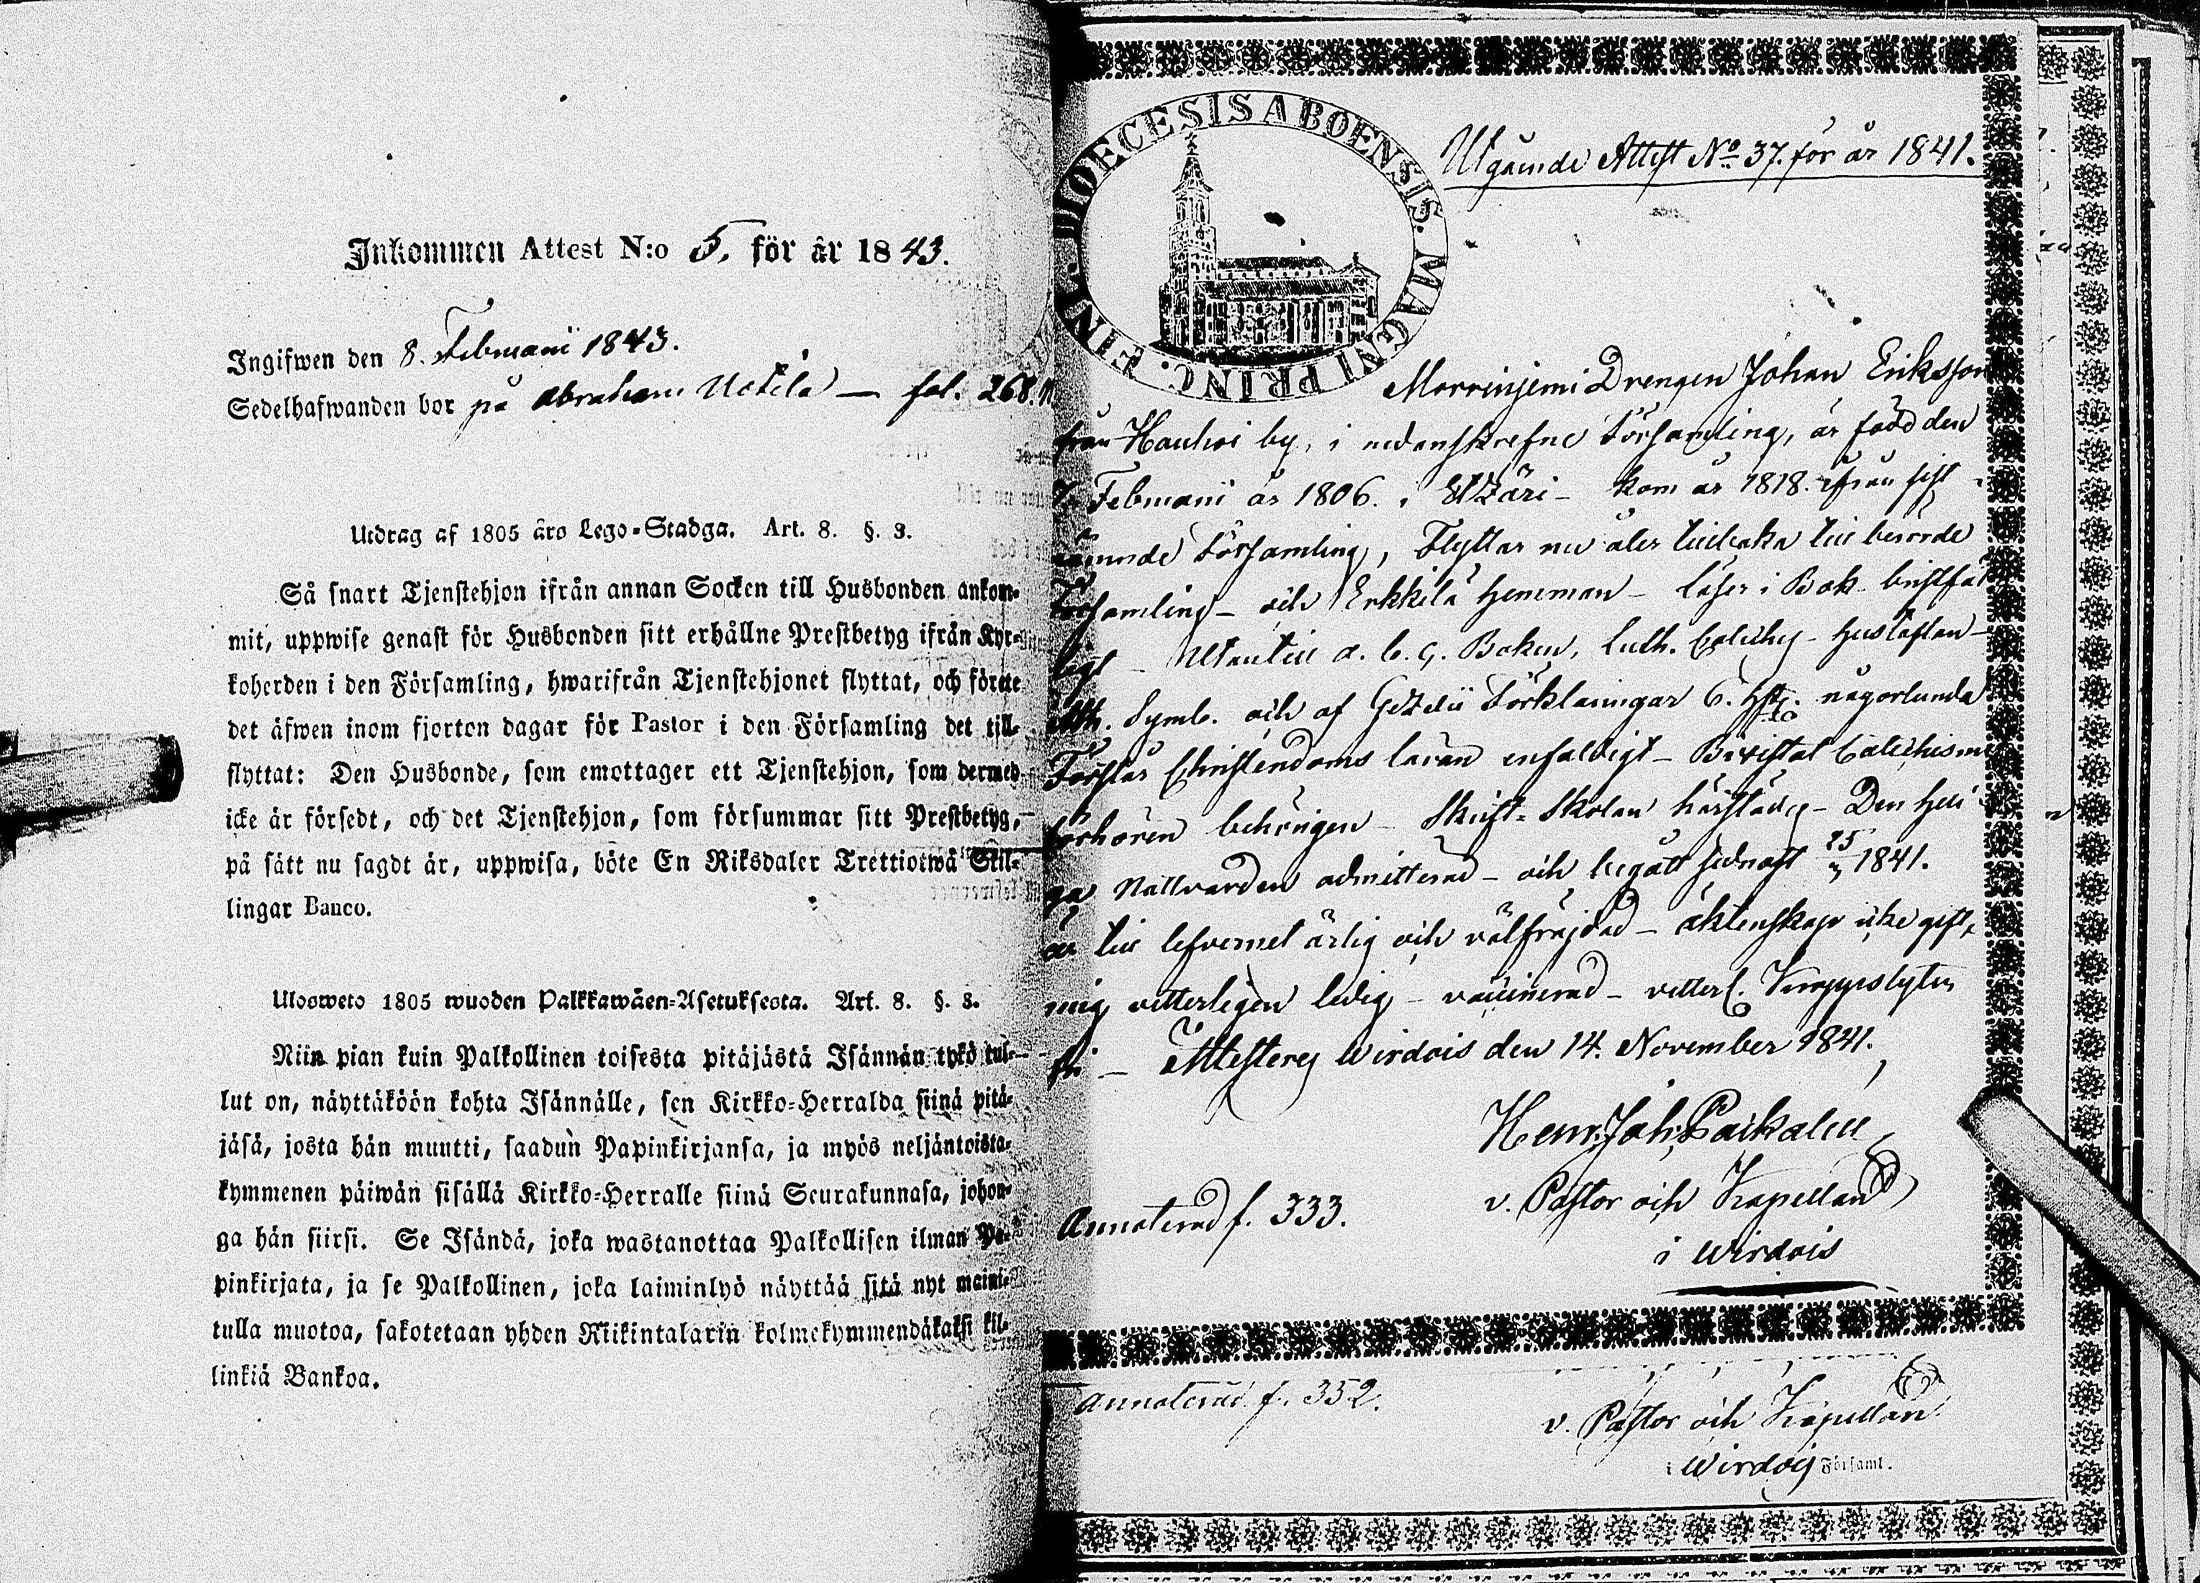 Inkommen Attest N:o 5. för år 1843.
Ingifwen den 8. Februarii 1843.
Sedelhafwanden bor på Abraham Uctila — fol. 268.
Utdrag af 1805 års Lego-Stadga. Art. 8. §. 3.
Så snart Tjenstehjon ifrån annan Socken till Husbonden ankom-
mit, uppwise genast för Husbonden sitt erhållne Prestbetyg ifrån Kyr-
koherden i den Församling, hwarifrån Tjenstehjonet flyttat, och förete
det äfwen inom fjorton dagar för Pastor i den Församling det till-
flyttat: Den Husbonde, som emottager ett Tjenstehjon, som dermed
icke är försedt, och det Tjenstehjon, som försummar sitt Prestbetyg,
på sätt nu sagdt är, uppwisa, böte En Riksdaler Trettiotwå Skil-
lingar Banco.
Ulosweto 1805 wuoden Palkkawäen-Asetuksesta. Art. 8. §. 3.
Niin pian kuin Palkollinen toisesta pitäjästä Isännän tykö tul-
lut on, näyttäköön kohta Isännälle, sen Kirkko-Herralda siinä pitä-
jäsä, josta hän muutti, saadun Papinkirjansa, ja myös neljäntoista-
kymmenen päiwän sisällä Kirkko-Herralle siinä Seurakunnasa, johon-
ga hän siirsi. Se Isändä, joka wastanottaa Palkollisen ilman Pa-
pinkirjata, ja se Palkollinen, joka laiminlyö näyttää sitä nyt maini-
tulla muotoa, sakotetaan yhden Riikintalarin kolmekymmendäkaksi kil-
linkiä Bankoa.
DIOECESIS ABOENSIS. MAGNI PRINC. FINL.
Utgående Attest No 37. för år 1841.
Drengen Johan Eriksson
från Hauhoi by, i nedanskrefne Församling, är född den
Februarii år 1806. i Etzäri - kom år 1818. ifrån sist
nämnde Församling, Flyttar nu åter tillbaka till berörde
Församling - och Erkkilä hemman - läser i Bok bristfäl
ligt - Utantill a. b. c. Boken, Luth. Cateches - hustaflan -
Ath. Symb. och af Gezelii Förklaringar 6. någorlunda
Förstår Christendoms läran enfaldigt - Bevistat Catechismi
förhören behörigen - Skrift-Skolan härstädes - Den heli
ga Nattvarden admitterad - och begått sednast 1841.
är till lefvernet ärlig och välfräjdad - äktenskap icke gift,
mig vetterligen ledig - vaccinerad - vetterl.
- Attesterej Wirdois den 14. November 1841.
Henr. Joh.
v. Pastor och Kapellan
i Wirdois
Annoterad f. 333.
Annoterad f. 352.
v. Pastor och Kapellan
i Wirdois Församl.